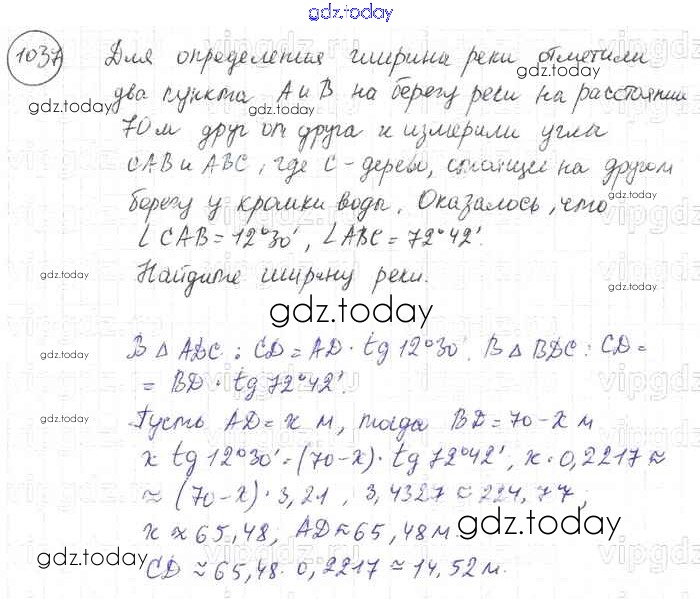 gdz.today
1037 Для определения ширины реки отметили
два пункта A и B на берегу реки на расстоянии
70 м друг от друга и измерили углы
CAB и ABC, где C - дерево, стоящее на другом
берегу у кромки воды. Оказалось, что
∠CAB = 12°30', ∠ABC = 72°42'.
Найдите ширину реки.
gdz.today
В △ADC: CD = AD · tg 12°30'. В △BDC: CD =
= BD · tg 72°42'.
Пусть AD = x м, тогда BD = 70 - x м
x tg 12°30' = (70-x) · tg 72°42', x · 0,2217 ≈
≈ (70-x) · 3,21, 3,4327 ≈ 224,77;
x ≈ 65,48, AD ≈ 65,48 м.
CD ≈ 65,48 · 0,2217 ≈ 14,52 м.